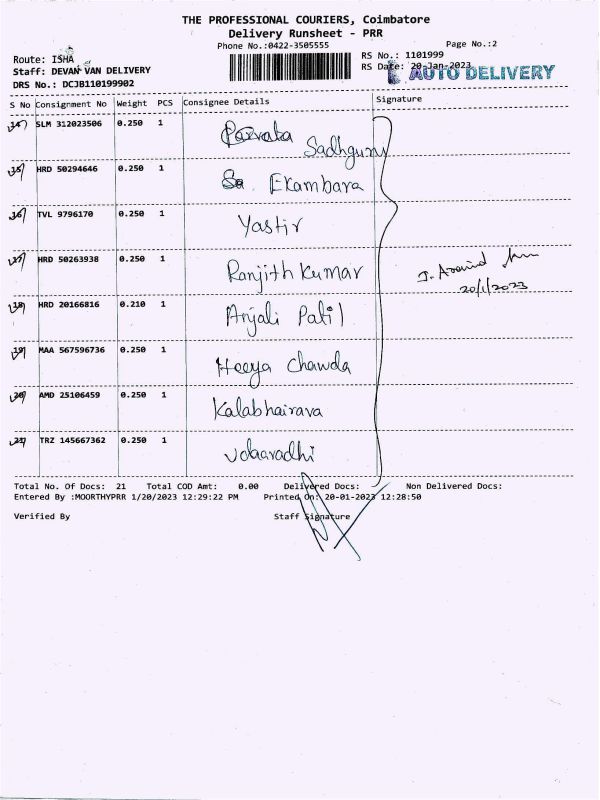 THE PROFESSIONAL COURIERS, Coimbatore
Delivery Runsheet - PRR
Phone No.:0422-3505555
Page No.:2
Route: ISHA
RS No.: 1101999
Staff: DEVAN VAN DELIVERY
RS Date: 20-Jan-2023
AUTO DELIVERY
DRS No.: DCJB110199902
S No Consignment No Weight PCS Consignee Details Signature
14 SLM 312023506 0.250 1 Sadhguru
15 HRD 50294646 0.250 1 Ekambara
16 TVL 9796170 0.250 1 Yastir
17 HRD 50263938 0.250 1 Ranjith Kumar
J. Aravind
20/1/2023
18 HRD 20166816 0.210 1 Anjali Patil
19 MAA 567596736 0.250 1 Heeya Chawda
20 AMD 25106459 0.250 1 Kalabhairava
21 TRZ 145667362 0.250 1
Total No. Of Docs: 21 Total COD Amt: 0.00 Delivered Docs: Non Delivered Docs:
Entered By :MOORTHYPRR 1/20/2023 12:29:22 PM Printed On: 20-01-2023 12:28:50
Verified By Staff Signature